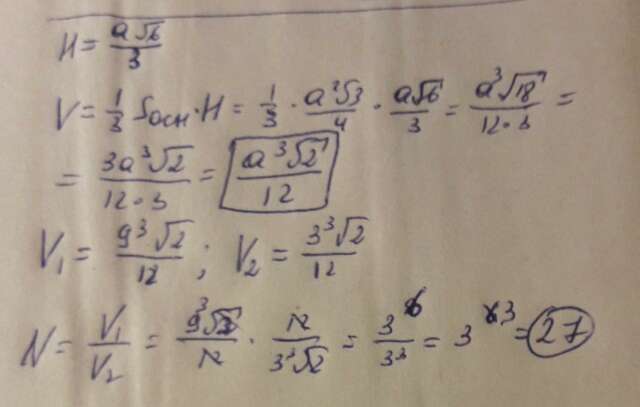 H = a√6/3
V = 1/3 Sосн · H = 1/3 · a²√3/4 · a√6/3 = a³√18/12·3 =
= 3a³√2/12·3 = a³√2/12
V₁ = 9³√2/12 ; V₂ = 3³√2/12
N = V₁/V₂ = 9³√2/12 · 12/3³√2 = 3⁶/3³ = 3³ = 27